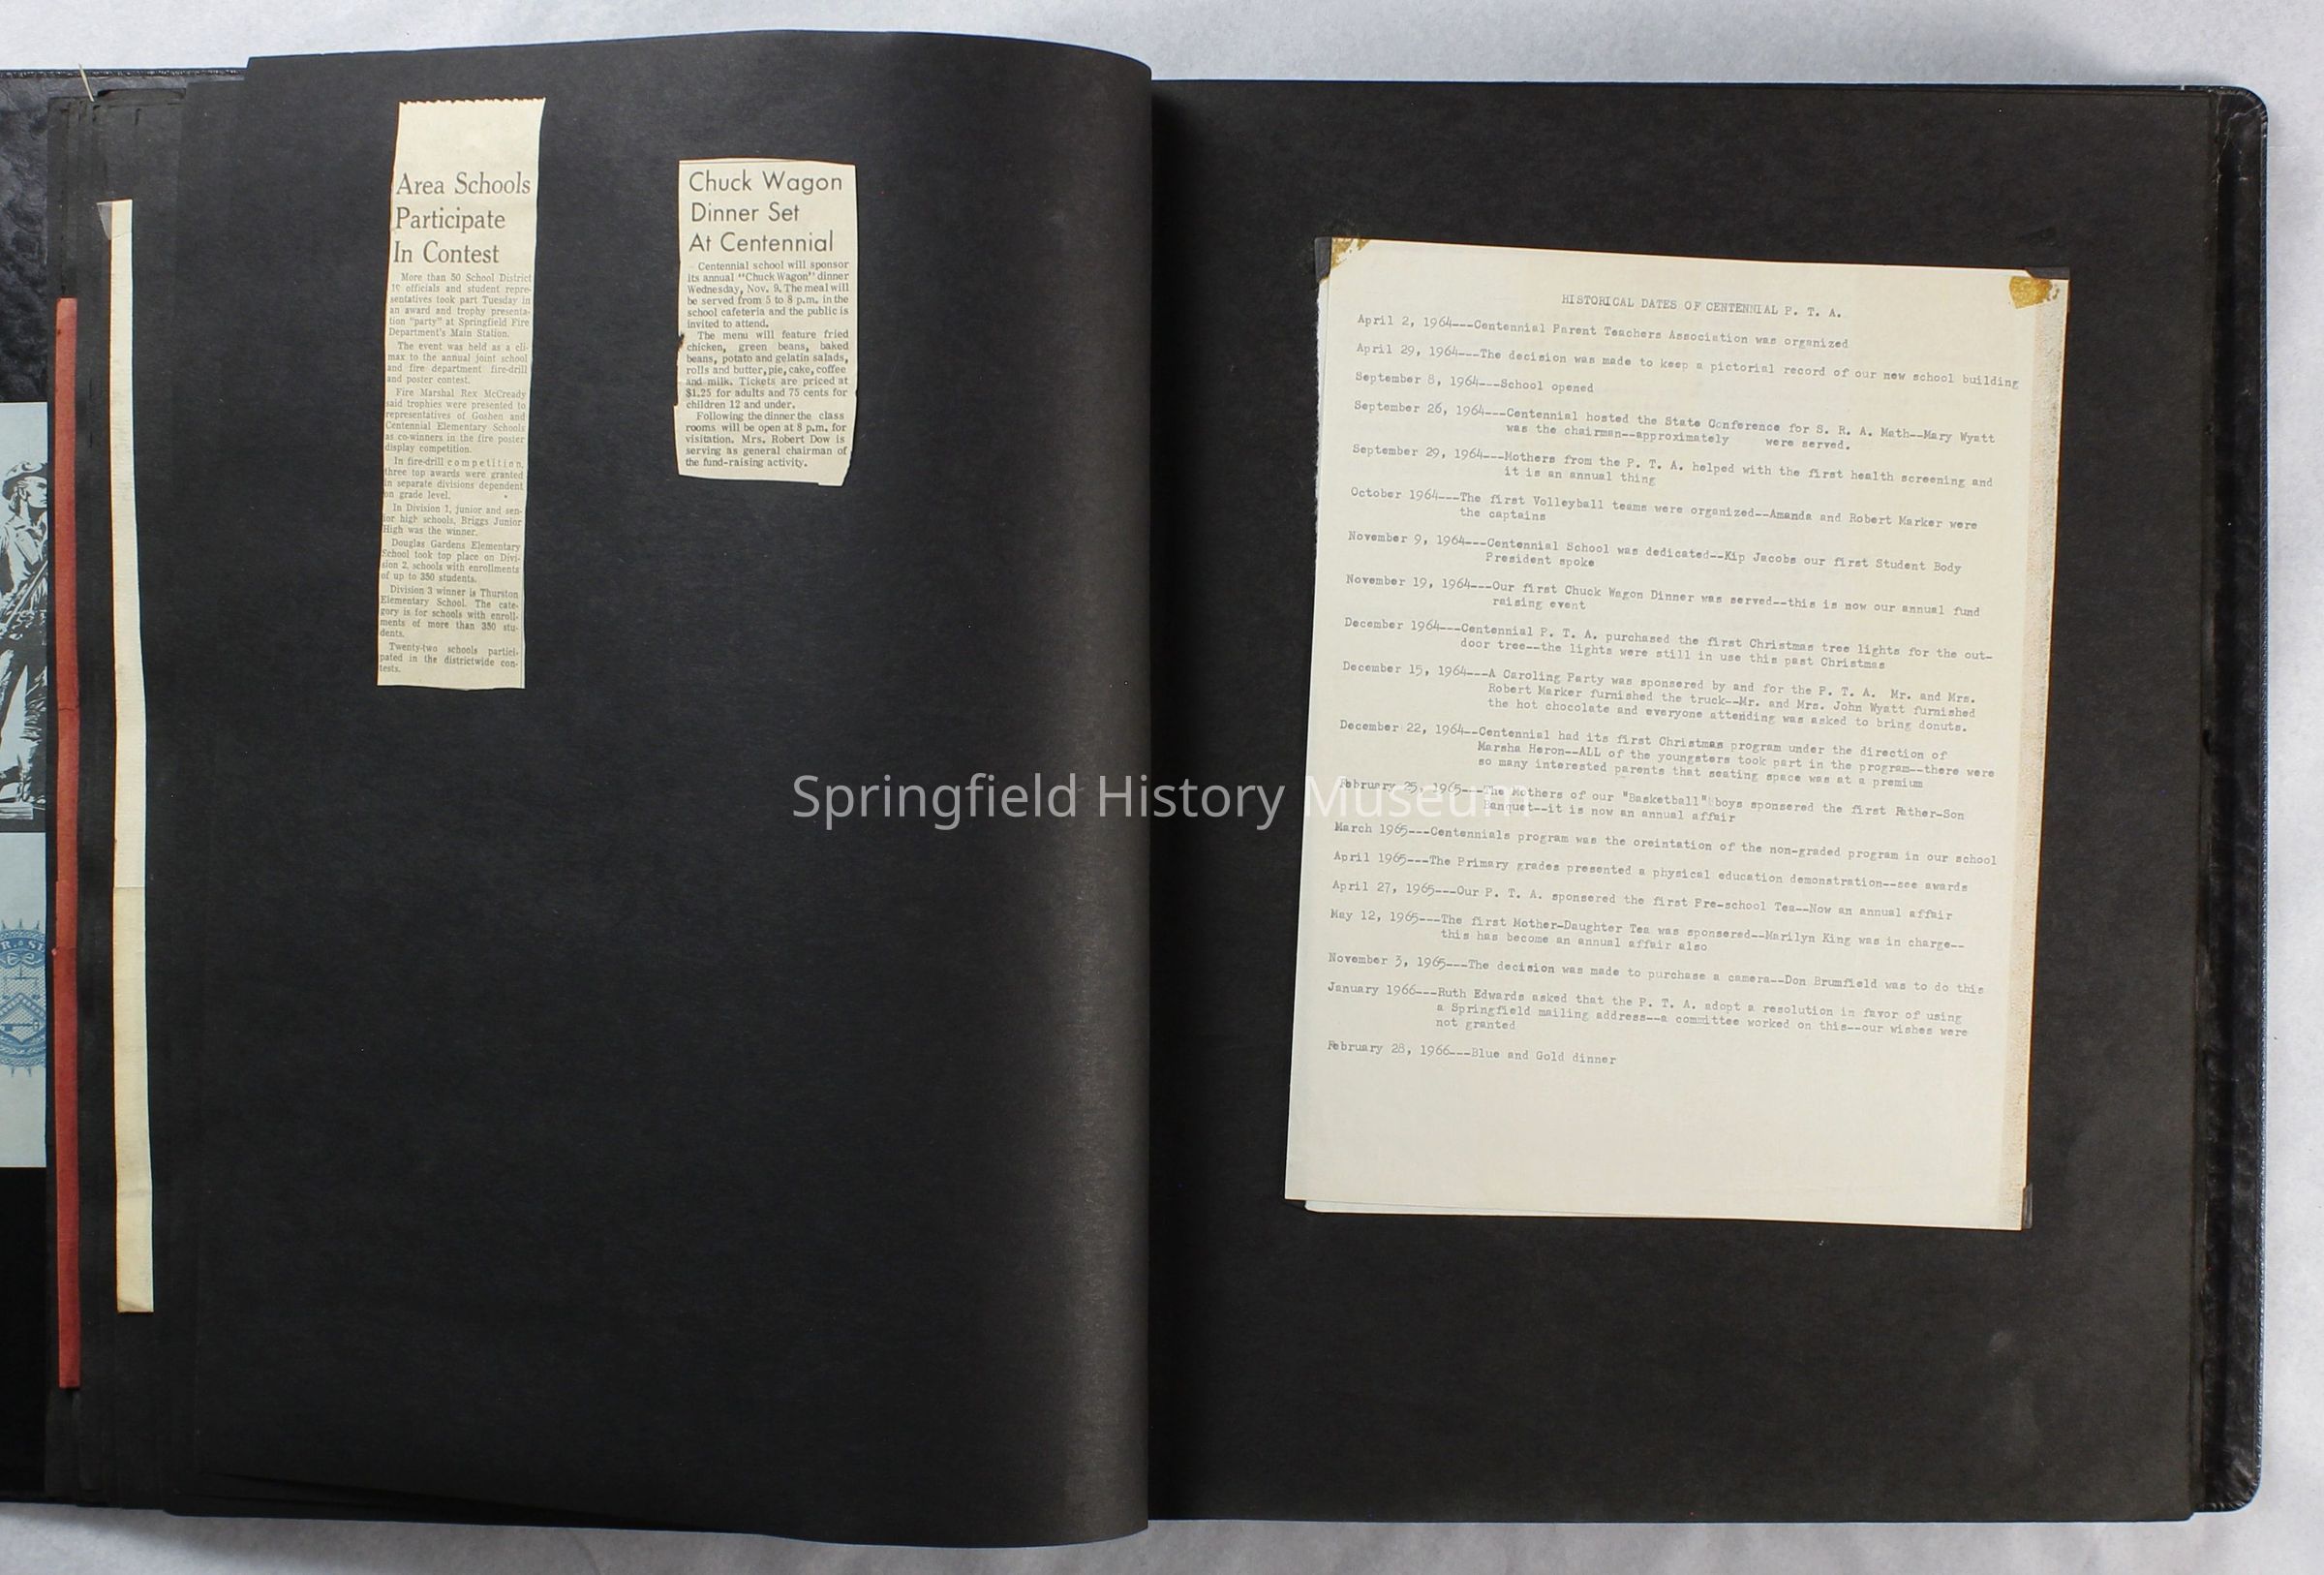 Area Schools
Participate
In Contest
More than 50 School District
officials and student repre-
sentatives took part Tuesday in
an award and trophy presenta-
tion "party" at Springfield Fire
Department's Main Station.
The event was held as a cli-
max to the annual joint school
and fire department fire-drill
and poster contest.
Fire Marshal Rex McCready
said trophies were presented to
representatives of Goshen and
Centennial Elementary Schools
as co-winners in the fire poster
display competition.
In fire-drill competition,
three top awards were granted
in separate divisions dependent
on grade level.
In Division 1, junior and sen-
ior high schools, Briggs Junior
High was the winner.
Douglas Gardens Elementary
School took top place on Divi-
sion 2, schools with enrollments
of up to 350 students.
Division 3 winner is Thurston
Elementary School. The cate-
gory is for schools with enroll-
ments of more than 350 stu-
dents.
Twenty-two schools partici-
pated in the districtwide con-
tests.
Chuck Wagon
Dinner Set
At Centennial
Centennial school will sponsor
its annual "Chuck Wagon" dinner
Wednesday, Nov. 9. The meal will
be served from 5 to 8 p.m. in the
school cafeteria and the public is
invited to attend.
The menu will feature fried
chicken, green beans, baked
beans, potato and gelatin salads,
rolls and butter, pie, cake, coffee
and milk. Tickets are priced at
$1.25 for adults and 75 cents for
children 12 and under.
Following the dinner the class
rooms will be open at 8 p.m. for
visitation. Mrs. Robert Dow is
serving as general chairman of
the fund-raising activity.
HISTORICAL DATES OF CENTENNIAL P. T. A.
April 2, 1964---Centennial Parent Teachers Association was organized
April 29, 1964---The decision was made to keep a pictorial record of our new school building
September 8, 1964---School opened
September 26, 1964---Centennial hosted the State Conference for S. R. A. Math--Mary Wyatt
was the chairman--approximately were served.
September 29, 1964---Mothers from the P. T. A. helped with the first health screening and
it is an annual thing
October 1964---The first Volleyball teams were organized--Amanda and Robert Marker were
the captains
November 9, 1964---Centennial School was dedicated--Kip Jacobs our first Student Body
President spoke
November 19, 1964---Our first Chuck Wagon Dinner was served--this is now our annual fund
raising event
December 1964---Centennial P. T. A. purchased the first Christmas tree lights for the out-
door tree--the lights were still in use this past Christmas
December 15, 1964---A Caroling Party was sponsered by and for the P. T. A. Mr. and Mrs.
Robert Marker furnished the truck--Mr. and Mrs. John Wyatt furnished
the hot chocolate and everyone attending was asked to bring donuts.
December 22, 1964--Centennial had its first Christmas program under the direction of
Marsha Heron--ALL of the youngsters took part in the program--there were
so many interested parents that seating space was at a premium
February 25, 1965---The Mothers of our "Basketball" boys sponsered the first Father-Son
Banquet--it is now an annual affair
March 1965---Centennials program was the oreintation of the non-graded program in our school
April 1965---The Primary grades presented a physical education demonstration--see awards
April 27, 1965---Our P. T. A. sponsered the first Pre-school Tea--Now an annual affair
May 12, 1965---The first Mother-Daughter Tea was sponsered--Marilyn King was in charge--
this has become an annual affair also
November 3, 1965---The decision was made to purchase a camera--Don Brumfield was to do this
January 1966---Ruth Edwards asked that the P. T. A. adopt a resolution in favor of using
a Springfield mailing address--a committee worked on this--our wishes were
not granted
February 28, 1966---Blue and Gold dinner
Springfield History Museum